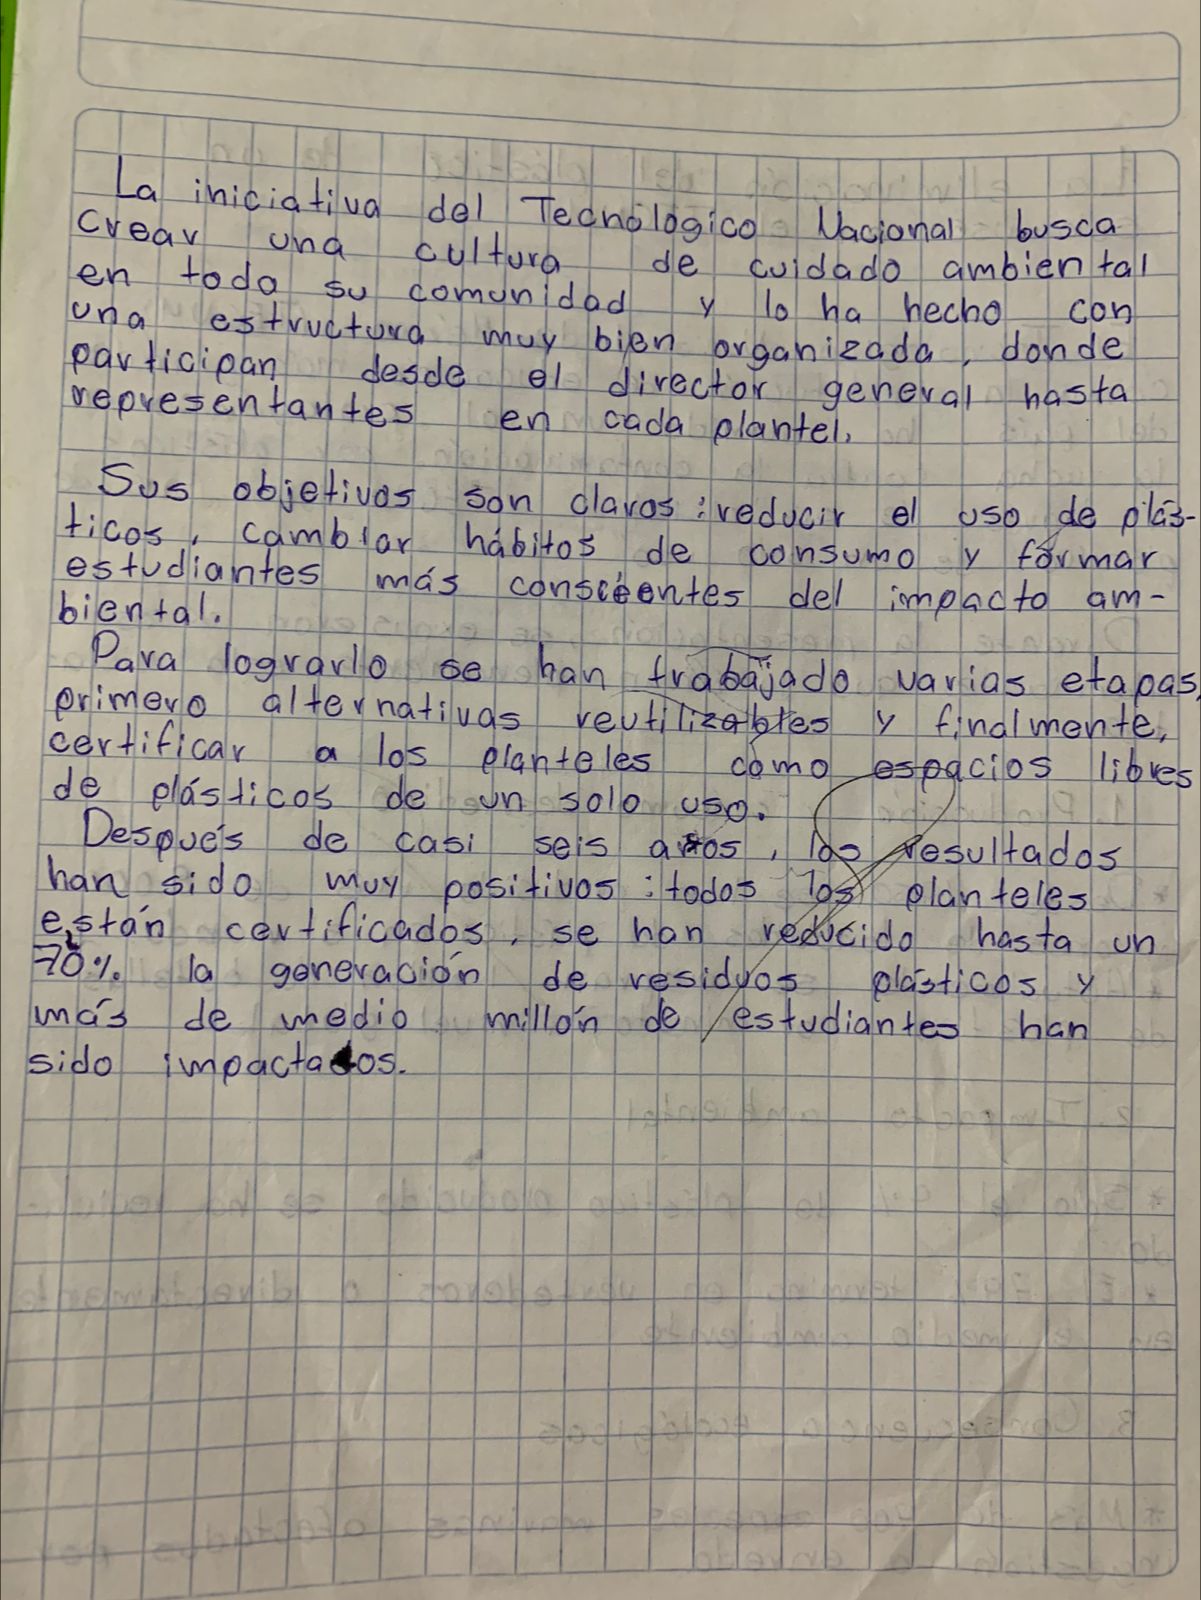 La iniciativa del Tecnológico Nacional busca
crear una cultura de cuidado ambiental
en toda su comunidad y lo ha hecho con
una estructura muy bien organizada, donde
participan desde el director general hasta
representantes en cada plantel.
Sus objetivos son claros: reducir el uso de plás-
ticos, cambiar hábitos de consumo y formar
estudiantes más conscientes del impacto am-
biental.
Para lograrlo se han trabajado varias etapas,
primero alternativas reutilizables y finalmente,
certificar a los planteles como espacios libres
de plásticos de un solo uso.
Después de casi seis años, los resultados
han sido muy positivos: todos los planteles
están certificados, se han reducido hasta un
70% la generación de residuos plásticos y
más de medio millón de estudiantes han
sido impactados.